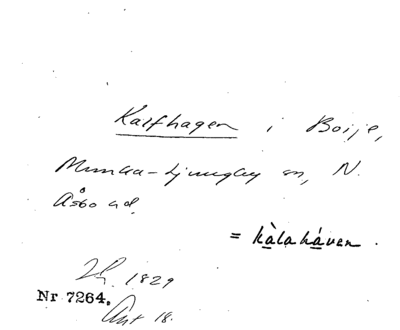 Kalfhagen i Boije,
Munka-Ljungby sn, N.
Åsbo hd.
= kàlahávan.
1829
Nr 7264.
Ant 18.